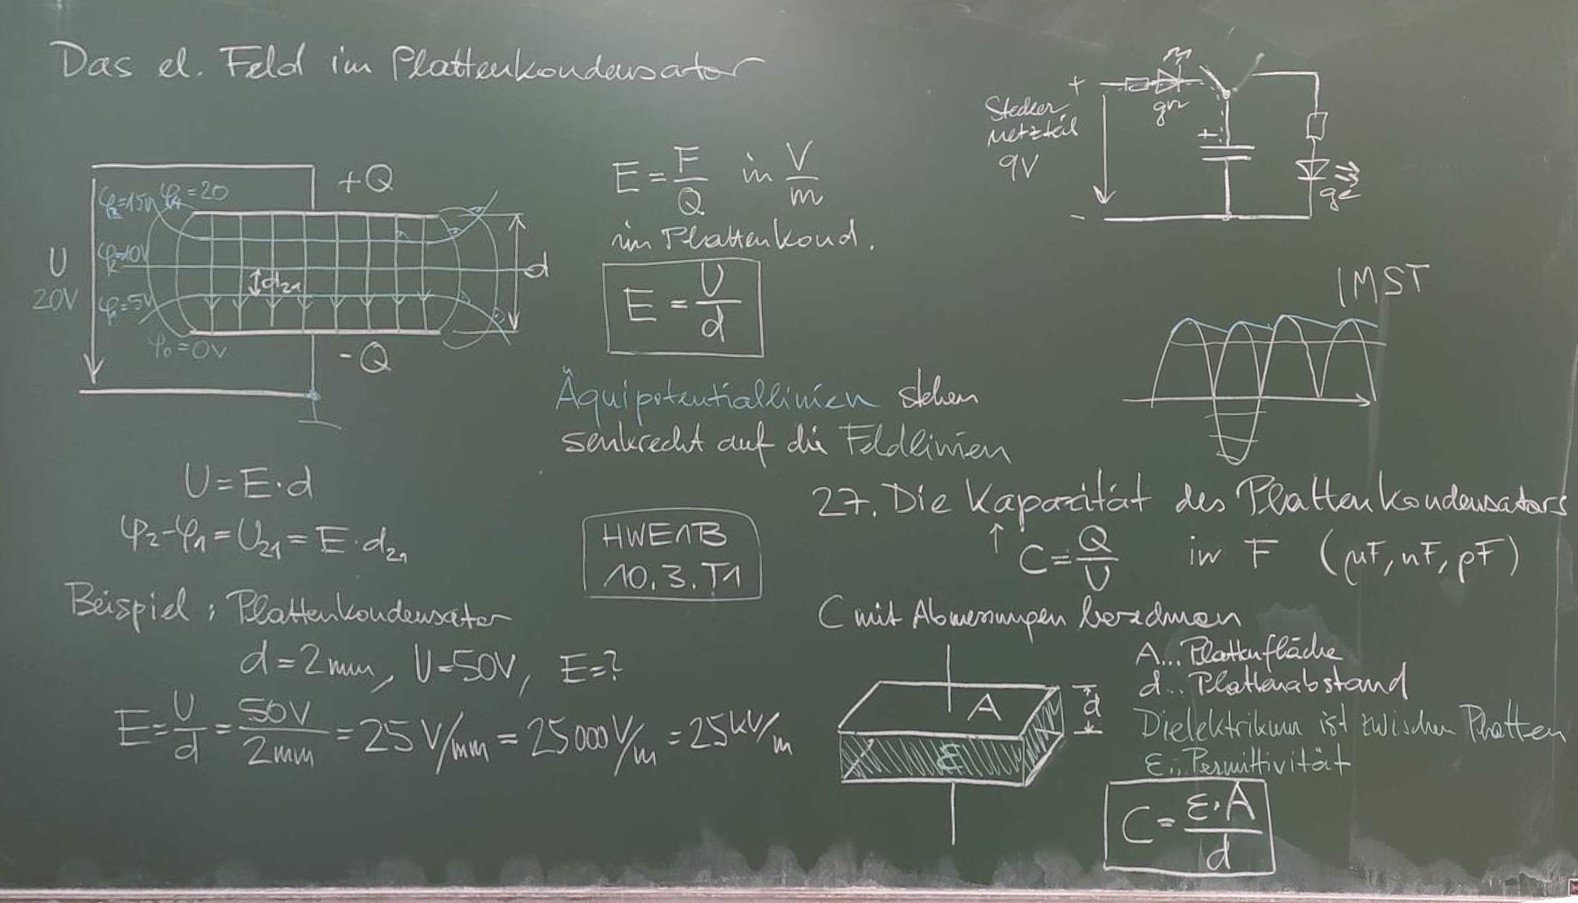 Das el. Feld im Plattenkondensator
+Q
φ₃=15V φ₄=20
φ₂=10V
U
20V
d₂₁
d
φ₁=5V
φ₀=0V
-Q
E = F/Q in V/m
im Plattenkond.
E = U/d
Äquipotentiallinien stehen
senkrecht auf die Feldlinien
U = E·d
φ₂-φ₁ = U₂₁ = E·d₂₁
HWE1B
10.3.T1
Beispiel: Plattenkondensator
d = 2mm, U=50V, E=?
E = U/d = 50V/2mm = 25 V/mm = 25000 V/m = 25 kV/m
Stecker
netzteil
9V
+
-
gn
+
ge
1MST
27. Die Kapazität des Plattenkondensators
↑ C = Q/U in F (µF, nF, pF)
C mit Abmessungen berechnen
A
d
ε
A... Plattenfläche
d.. Plattenabstand
Dielektrikum ist zwischen Platten
ε.. Permittivität
C = ε·A/d